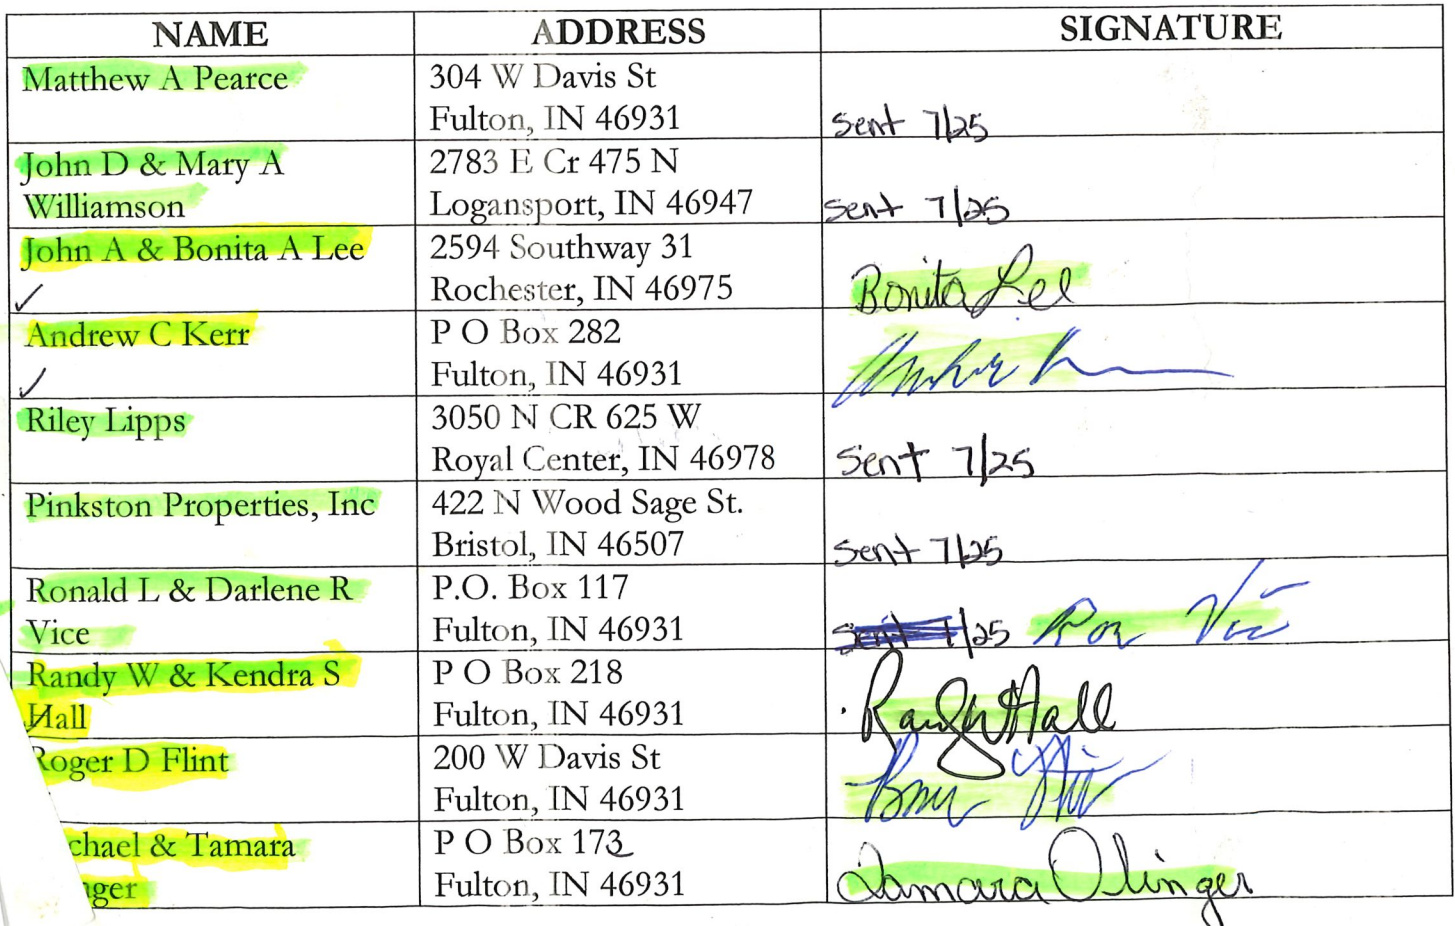 NAME ADDRESS SIGNATURE
Matthew A Pearce 304 W Davis St
Fulton, IN 46931 Sent 7/25
John D & Mary A 2783 E Cr 475 N
Williamson Logansport, IN 46947 Sent 7/25
John A & Bonita A Lee 2594 Southway 31
✓ Rochester, IN 46975 Bonita Lee
Andrew C Kerr P O Box 282
✓ Fulton, IN 46931
Riley Lipps 3050 N CR 625 W
Royal Center, IN 46978 Sent 7/25
Pinkston Properties, Inc 422 N Wood Sage St.
Bristol, IN 46507 Sent 7/25
Ronald L & Darlene R P.O. Box 117
Vice Fulton, IN 46931 Sent 7/25 Ron Vice
Randy W & Kendra S P O Box 218
Hall Fulton, IN 46931 Randy W Hall
Roger D Flint 200 W Davis St
Fulton, IN 46931
chael & Tamara P O Box 173
nger Fulton, IN 46931 Tamara Olinger